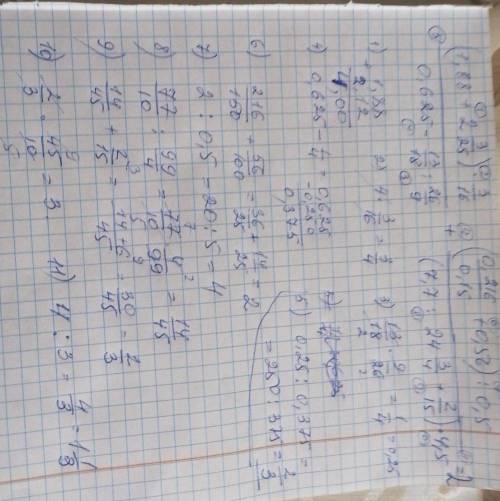 (1,88 + 2 3/25) · 3/16 / (0,625 - 13/18 : 26/9) + (0,216/0,15 + 0,56) : 0,5 / (7,7 : 24 3/4 + 2/15) · 4,5 = 2
1) 1,88 + 2,12 = 4,00 2) 4 · 3/16 = 3/4 3) 13/18 · 9/26 = 1/4 = 0,25
4) 0,625 - 1/4 = 0,625 - 0,250
0,375
5) 0,25 : 0,375 =
= 250 : 375 = 2/3
6) 216/150 + 56/100 = 36/25 + 14/25 = 2
7) 2 : 0,5 = 20 : 5 = 4
8) 77/10 : 99/4 = 77/10 · 4/99 = 14/45
9) 14/45 + 2/15 = 14+6/45 = 30/45 = 2/3
10) 2/3 · 45/10 = 3 11) 4 : 3 = 4/3 = 1 1/3